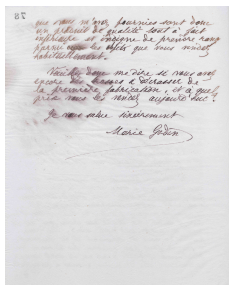 que vous m'avez fournies sont donc
un produit de qualité tout à fait
inférieure et indigne de premier rang
parmi les objets que vous vendez
habituellement.
Veuillez donc me dire si vous avez
encore des à écraser de
la première fabrication, et à quel
prix vous les vendez aujourd'hui ?
Je vous salue sincèrement
Marie Godin